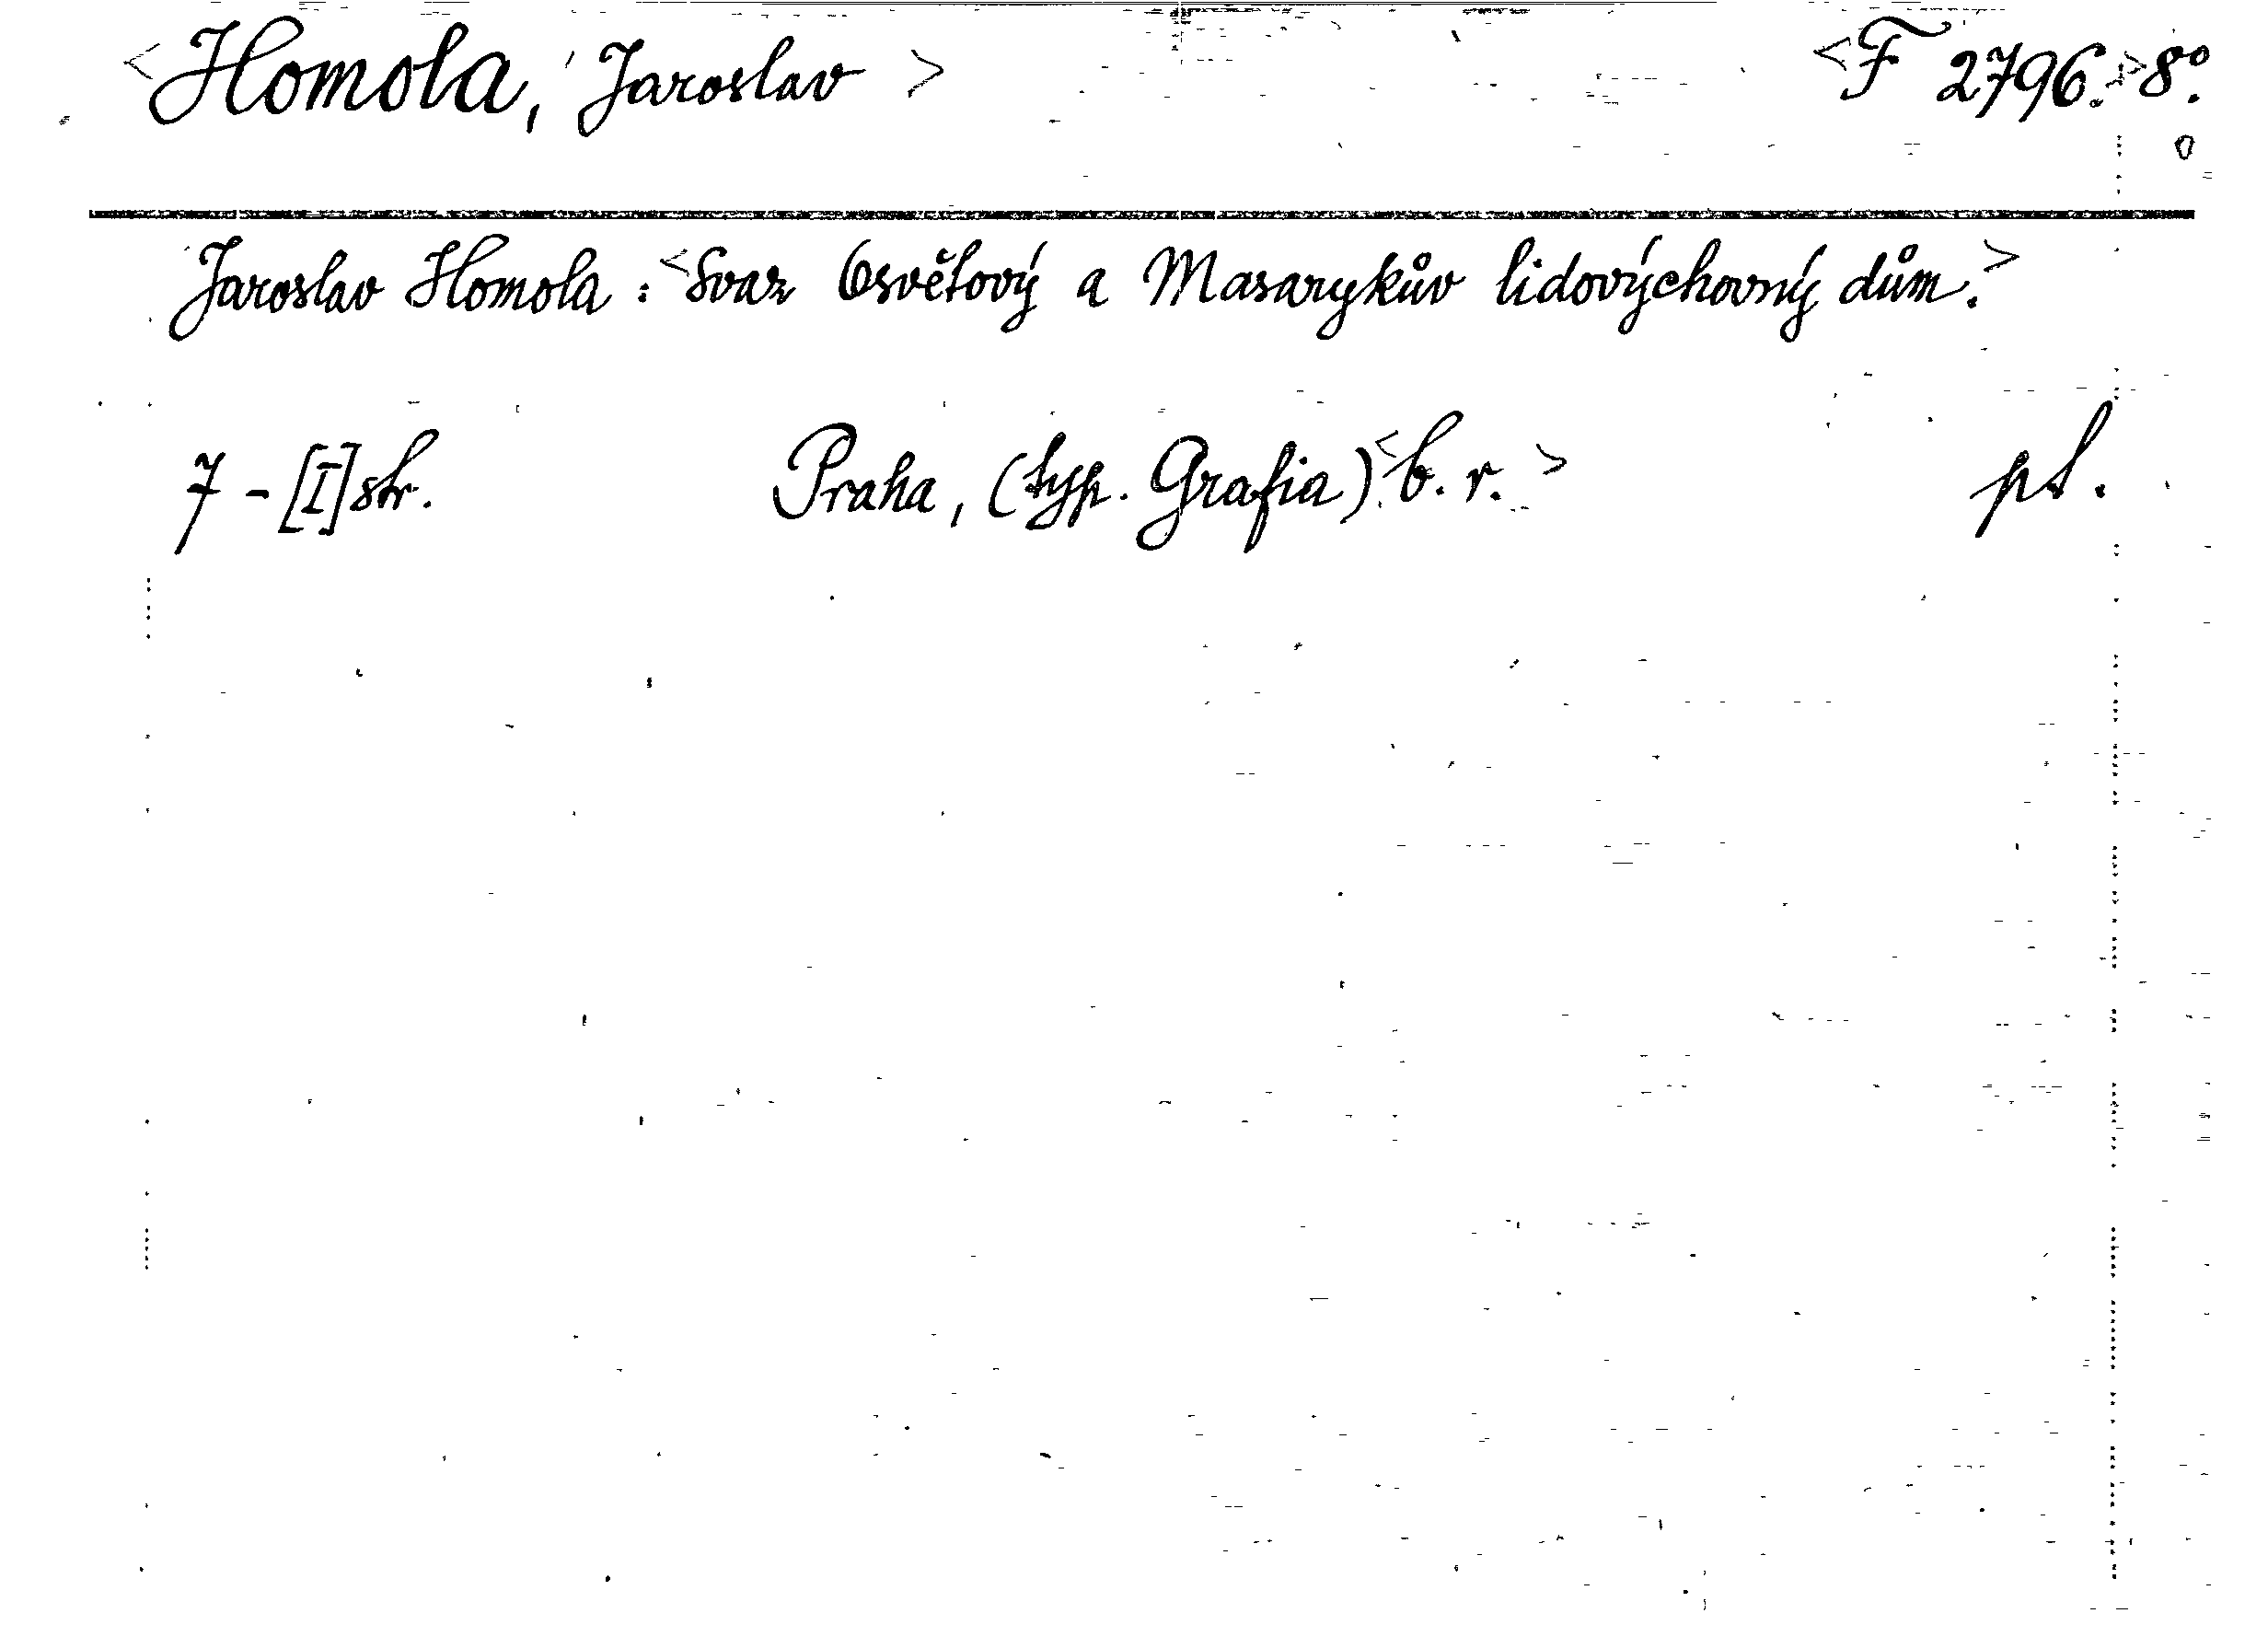 <Homola, Jaroslav> <F 2796.> 8°.
Jaroslav Homola: <Svaz Osvětový a Masarykův lidovýchovný dům.>
7 - [I] str. Praha, (typ. Grafia). <b. r.> pt.